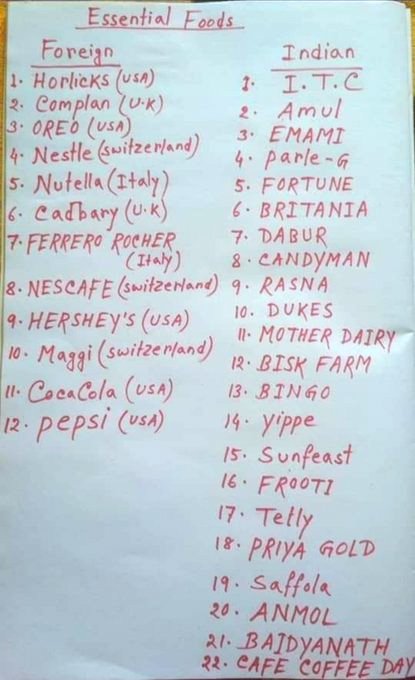 Essential Foods
Foreign
1. Horlicks (USA)
2. Complan (U.K)
3. OREO (USA)
4. Nestle (Switzerland)
5. Nutella (Italy)
6. Cadbary (U.K)
7. FERRERO ROCHER
(Italy)
8. NESCAFE (Switzerland)
9. HERSHEY'S (USA)
10. Maggi (Switzerland)
11. CocaCola (USA)
12. pepsi (USA)
Indian
1. I.T.C
2. Amul
3. EMAMI
4. Parle-G
5. FORTUNE
6. BRITANIA
7. DABUR
8. CANDYMAN
9. RASNA
10. DUKES
11. MOTHER DAIRY
12. BISK FARM
13. BINGO
14. yippe
15. Sunfeast
16. FROOTI
17. Tetly
18. PRIYA GOLD
19. Saffola
20. ANMOL
21. BAIDYANATH
22. CAFE COFFEE DAY